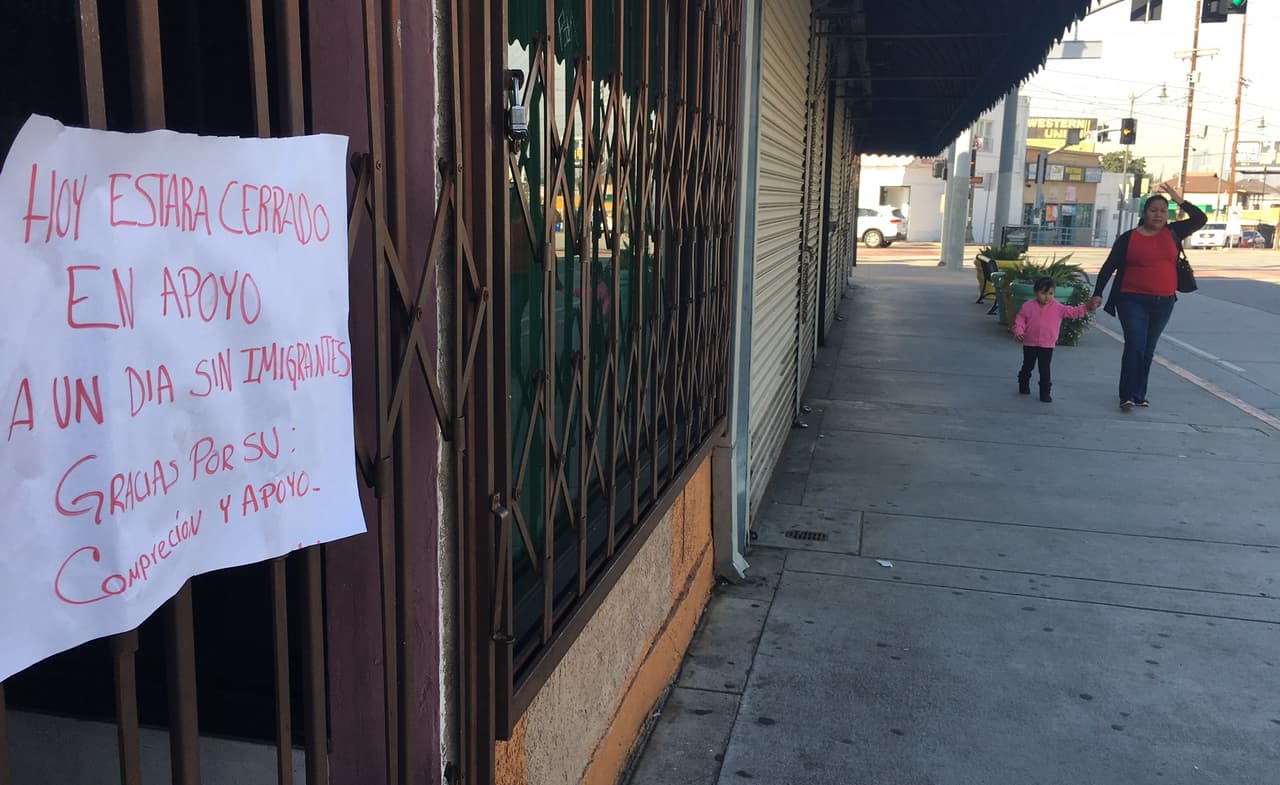 HOY ESTARA CERRADO
EN APOYO
A UN DIA SIN IMIGRANTES
GRACIAS POR SU:
COMPRECIÓN Y APOYO.
WESTERN
UNI